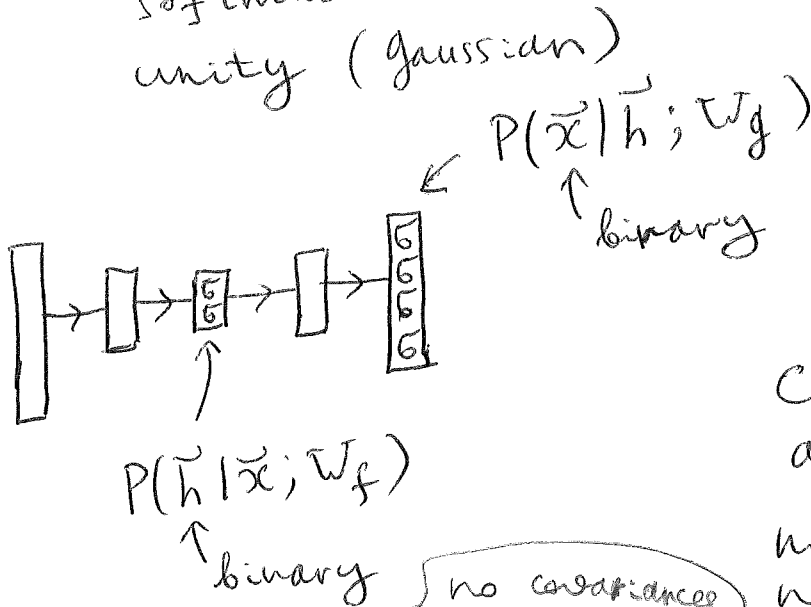 unity (gaussian)
P(x⃗|h⃗; W_g)
binary
σ
σ
σ
σ
σ
σ
P(h⃗|x⃗; W_f)
binary
no covariances